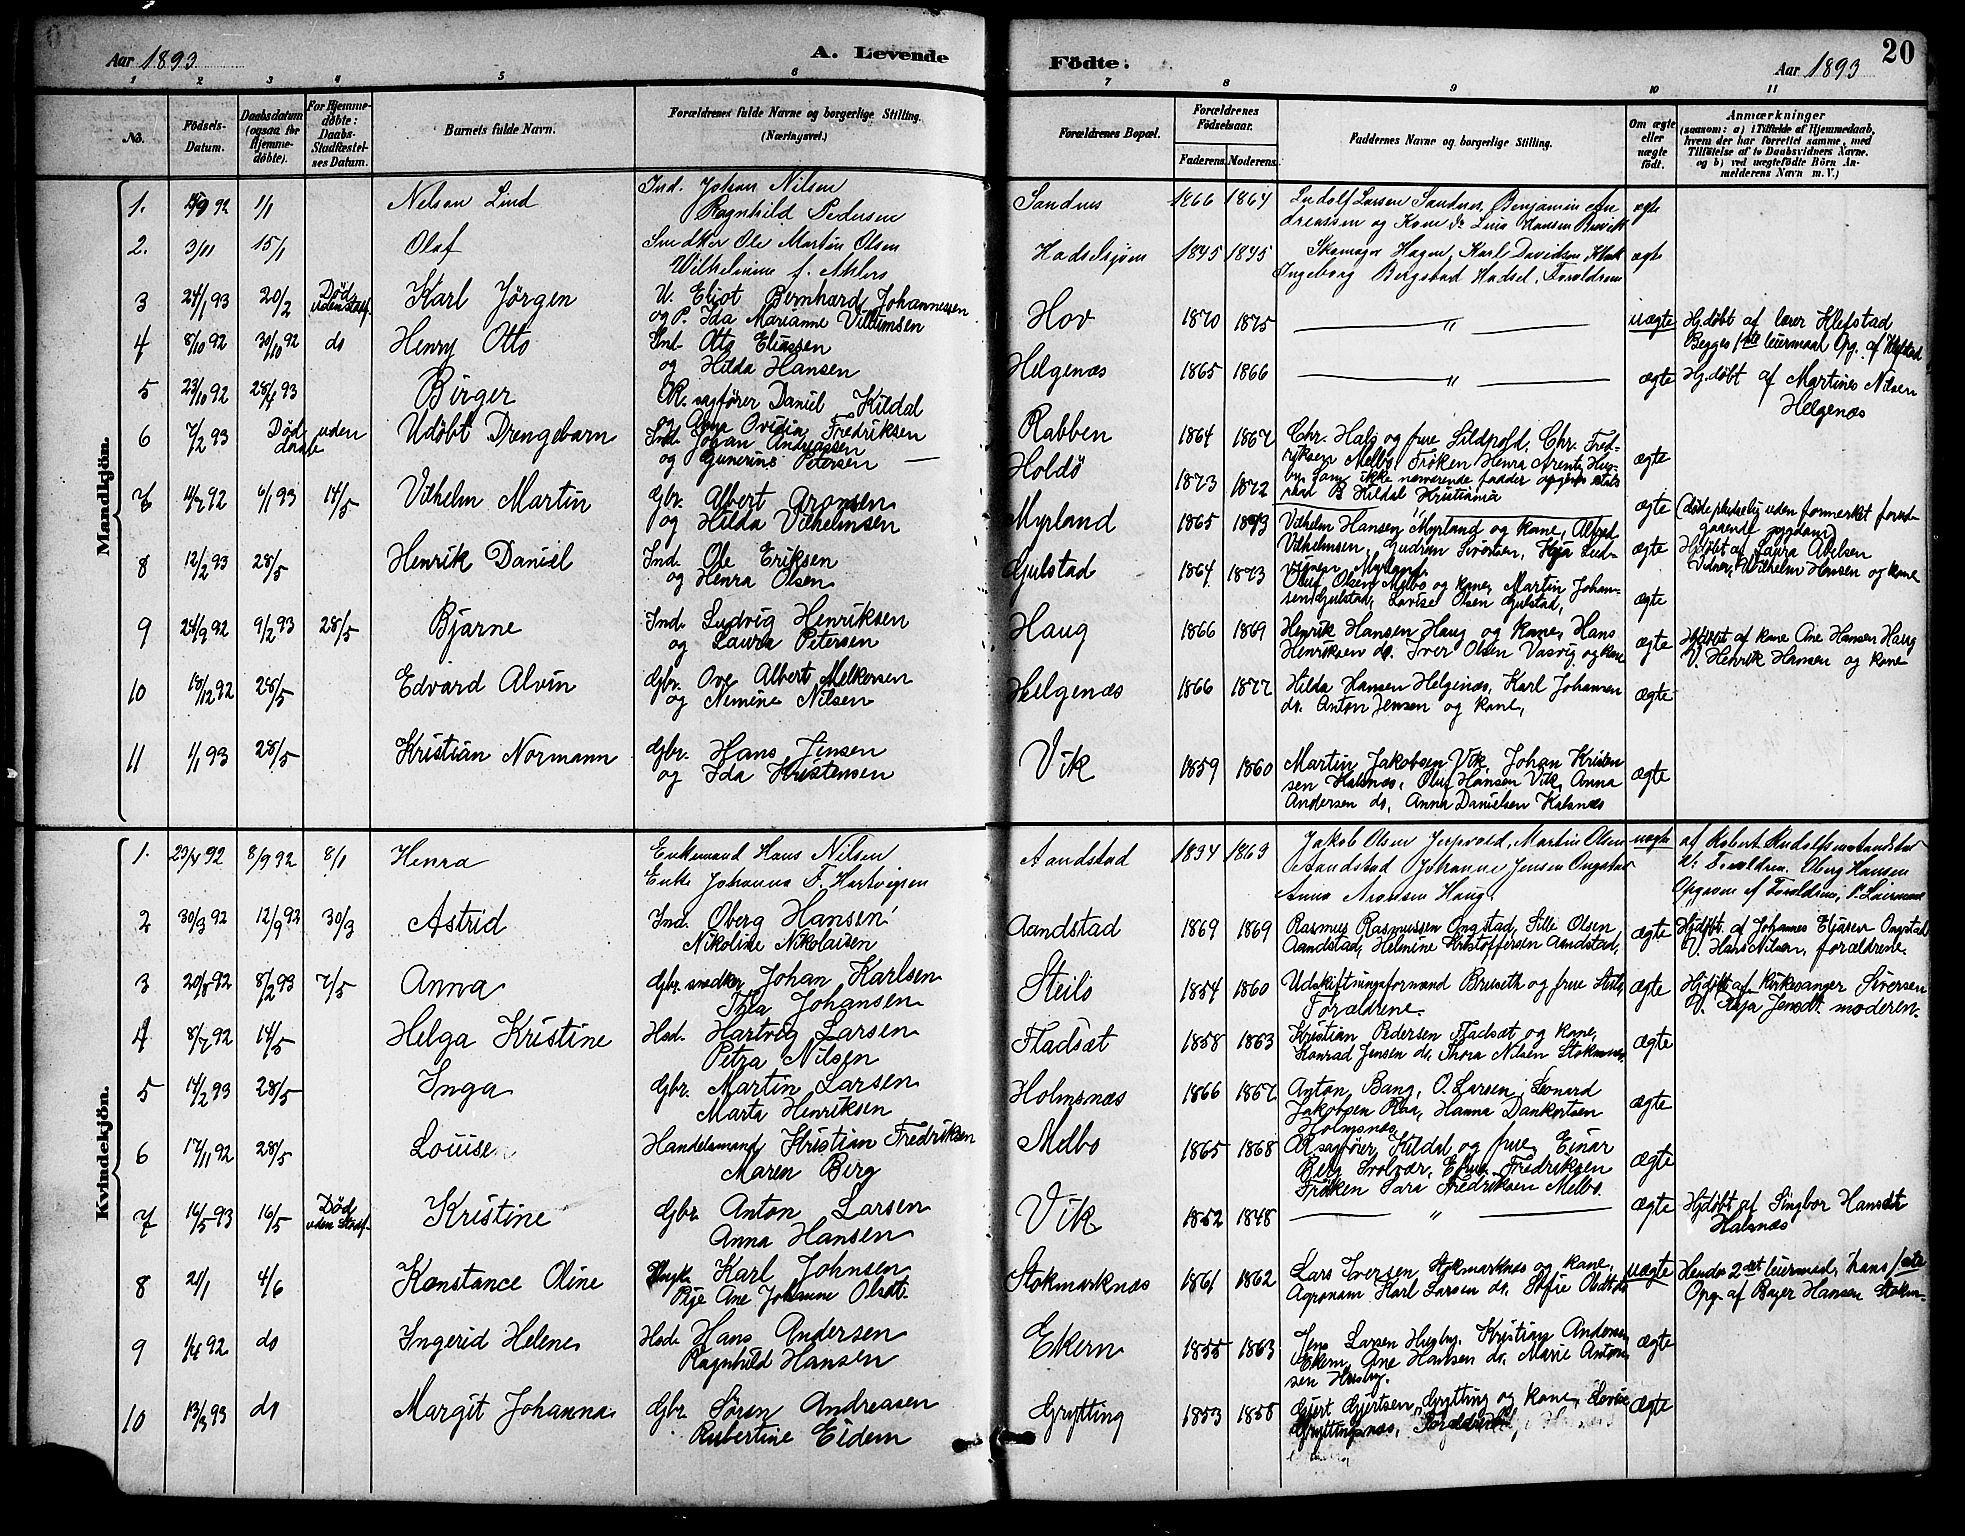 Aar 1893
A. Levende
Födte.
Aar 1893
20
1 2 3 4 5 6 7 8 9 10 11
No.
Födsels-Datum.
Daabsdatum (ogsaa for Hjemme-döbte).
For Hjemme-döbte: Daabs-Stadfæstel-ses Datum.
Barnets fulde Navn.
Forældrenes fulde Navne og borgerlige Stilling.
(Næringsvei.)
Forældrenes Bopæl.
Forældrenes Födselsaar.
Faderens. Moderens.
Faddernes Navne og borgerlige Stilling.
Om ægte eller uægte födt.
Anmærkninger
(saasom: a) i Tilfælde af Hjemmedaab,
hvem der har forrettet samme, med
Tilföielse af to Daabsvidners Navne.
og b) ved uægtefödte Börn An-
melderens Navn m. V.)
Mandkjön.
1. 92 1/1 Nelson Lind Ind. Johan Nilsen
Ragnhild Pedersen Sandnes 1866 1864 Ludolf Larsen Sandnes, Benjamin An-
dreassen og Kone ægte
2. 3/11 15/1 Olaf Snedker Ole Martin Olsen
Wilhelmine f. Ahlers Hadselsjöen 1845 1845 Skomager Hagen, Karl Davidsen
Ingeborg Bergstad Hadsel, Foreldrene ægte
3 24/1 93 20/2 Död uden stadf. Karl Jörgen U. Eliot Bernhard Johannessen
og P. Ida Marianne Villumsen Hov 1870 1875 " uægte Hj.döbt af lærer Klefstad
Begges 1ste leiermaal Opg. af Klefstad
4 8/10 92 30/10 92 do Henry Otto Ind. Otto Eliassen
og Hilda Hansen Helgenæs 1865 1866 " ægte Hj.döbt af Martines Nilsen
Helgenæs
5 23/10 92 28/4 93 Birger O.R. sagförer Daniel Kildal
og Anna Ovidia Fredriksen Rabben 1864 1867 Chr. Hals og frue Sildpold, Chr. Fred-
riksen Melbo, Fröken Henra Arentz Hus-
by Som ikke nærværende fadder opgives
Kildal Kristiania ægte
6 7/2 93 Död uden daab Udöbt Drengebarn Ind. Johan Andreassen
og Gunerine Petersen Holdö 1873 1872 ægte (döde pludselig uden formerket forud-
gaaende sygdom)
7 14/7 92 6/1 93 14/5 Vilhelm Martin Gbr. Albert Aronsen
og Hilda Vilhelmsen Myrland 1865 1873 Vilhelm Hansen Myrland og kone, Alfred
Vilhelmsen, Gudrun Sivertsen, Kaja Lud-
vigsen Myrland ægte Hj.döbt af Laura Abelsen
Vidner, Vilhelm Hansen og kone
8 12/2 93 28/5 Henrik Daniel Ind. Ole Eriksen
og Henra Olsen Gulstad 1864 1873 Oluf Olsen Melbo og kone, Martin Johan-
sen Gulstad, Lovise Olsen Gulstad, ægte
9 24/9 92 9/2 93 28/5 Bjarne Ind. Ludvig Henriksen
og Laura Petersen Haug 1866 1869 Henrik Hansen Haug og kone, Hans
Henriksen do. Iver Olsen Vasvig og kone ægte Hj.döbt af kone Ane Hansen Haug
V. Henrik Hansen og kone
10 18/12 92 28/5 Edvard Alvin Gbr. Ove Albert Melkersen
og Nemine Nilsen Helgenæs 1866 1877 Hilda Hansen Helgenæs, Karl Johansen
do. Anton Jensen og kone, ægte
11 1/1 93 28/5 Kristian Normann Gbr. Hans Jensen
og Ida Kristensen Vik 1859 1860 Martin Jakobsen Vik, Johan Kristen
sen Kalsnæs, Oluf Hansen Vik, Anna
Andersen do, Anna Danielsen Kalsnæs ægte
Kvindekjön.
1. 23/4 92 8/9 92 8/1 Henra Enkemand Hans Nilsen
Enke Johanna F. Hartvigsen Aandstad 1834 1869 Jakob Olsen Martin Olsen
Aandstad Johanne Jensen Ongstad
Anna Aronsen Haug uægte af Robert Rudolfsen Aandstad
V: Foreldrene. Oberg Hansen
Opgiven af Foreldrene,
2 30/3 92 12/9 92 30/3 Astrid Ind. Oberg Hansen
Nikoline Nikolaisen Aandstad 1869 1869 Rasmus Rasmussen Ongstad, Sille Olsen,
Aandstad, Helmine Kristoffersen Aandstad, ægte Hj.döbt af Johannes Eliasen Ongstad
V. Hans Nilsen, forældrene.
3 20/8 92 8/2 93 7/5 Anna Gbr. snedker Johan Karlsen
Thea Johansen Steilo 1854 1860 Udskiftningsformand Bruseth og frue Steilo
Forældrene. ægte Hjdöbt af Kirkesanger Siversen
V. Kaja Jensdt. moderen.
4 8/7 92 14/5 Helga Kristine Hsd. Hartvig Larsen
Petra Nilsen Fladsæt 1858 1863 Kristian Pedersen Fladsæt og kone,
Konrad Jensen do. Thora Nilsen Stokmarknæs ægte
5 14/2 93 28/5 Inga Gbr. Martin Larsen
Marta Henriksen Holmsnæs 1866 1867 Anton Bang, O. Larsen, Leonard
Jakobsen Raa, Hanna Dankertsen
Holmsnæs ægte
6 17/11 92 28/5 Louise Handelsmand Kristian Fredriksen
Maren Berg Melbo 1865 1868 O.R. sagförer Kildal og frue, Einar
Berg Svolvær, Fredriksen
Fröken Sara Fredriksen Melbo. ægte
7 16/5 93 16/5 Död uden Stadf. Kristine Gbr. Anton Larsen
Anna Hansen Vik 1852 1848 " ægte Hjdöbt af Singbor Hansdt
Kalsnæs
8 21/1 4/6 Konstance Oline Ungk. Karl Johnsen
Pige Ane Johanne Olsdt. Stokmarknæs 1861 1862 Lars Iversen Stokmarknæs og kone,
Agronom Karl Larsen do. Sofie Olsdt do uægte Hendes 2det leiermaal, hans 1ste
Opg. af Bager Hansen Stokm.
9 1/4 92 do Ingerid Helene Hsd. Hans Andersen
Ragnhild Hansen Ekern 1855 1863 Jens Larsen Husby, Kristian Andersen
Ekern, Ane Hansen do. Marie Anton-
sen Husby. ægte
10 13/3 93 do Margit Johanna Gbr. Sören Andreasen
Rubertine Eidem Grytting 1853 1858 Gjert Gjertsen, Grytting og kone, Lovise
Gryttingsnæs, Forældrene ægte